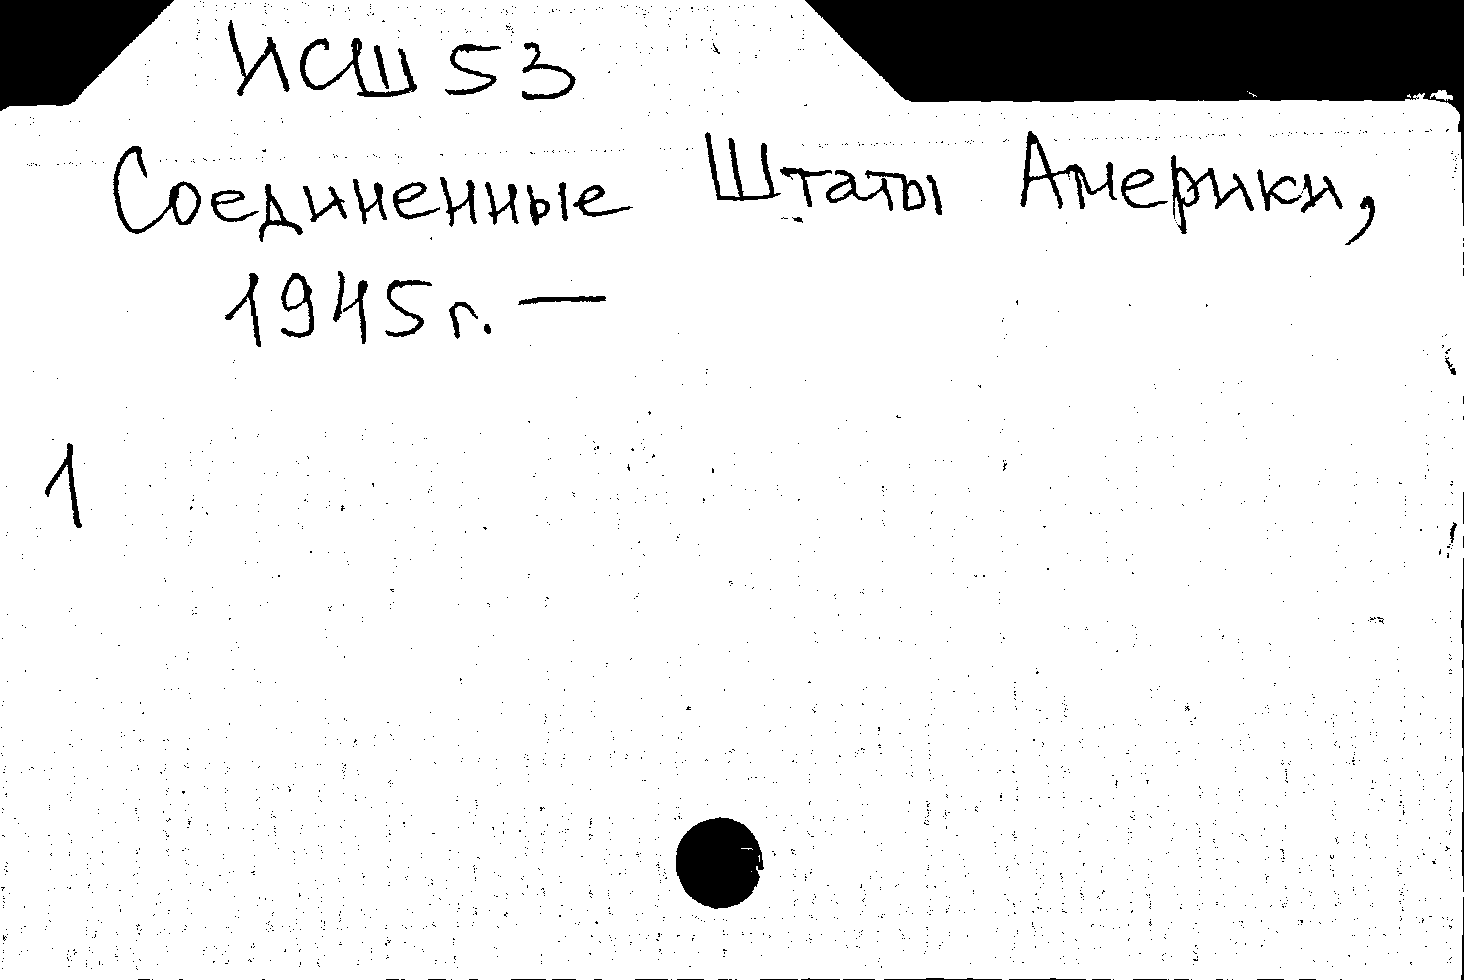 ИСШ 53
Соединенные Штаты Америки,
1945 г. —
1